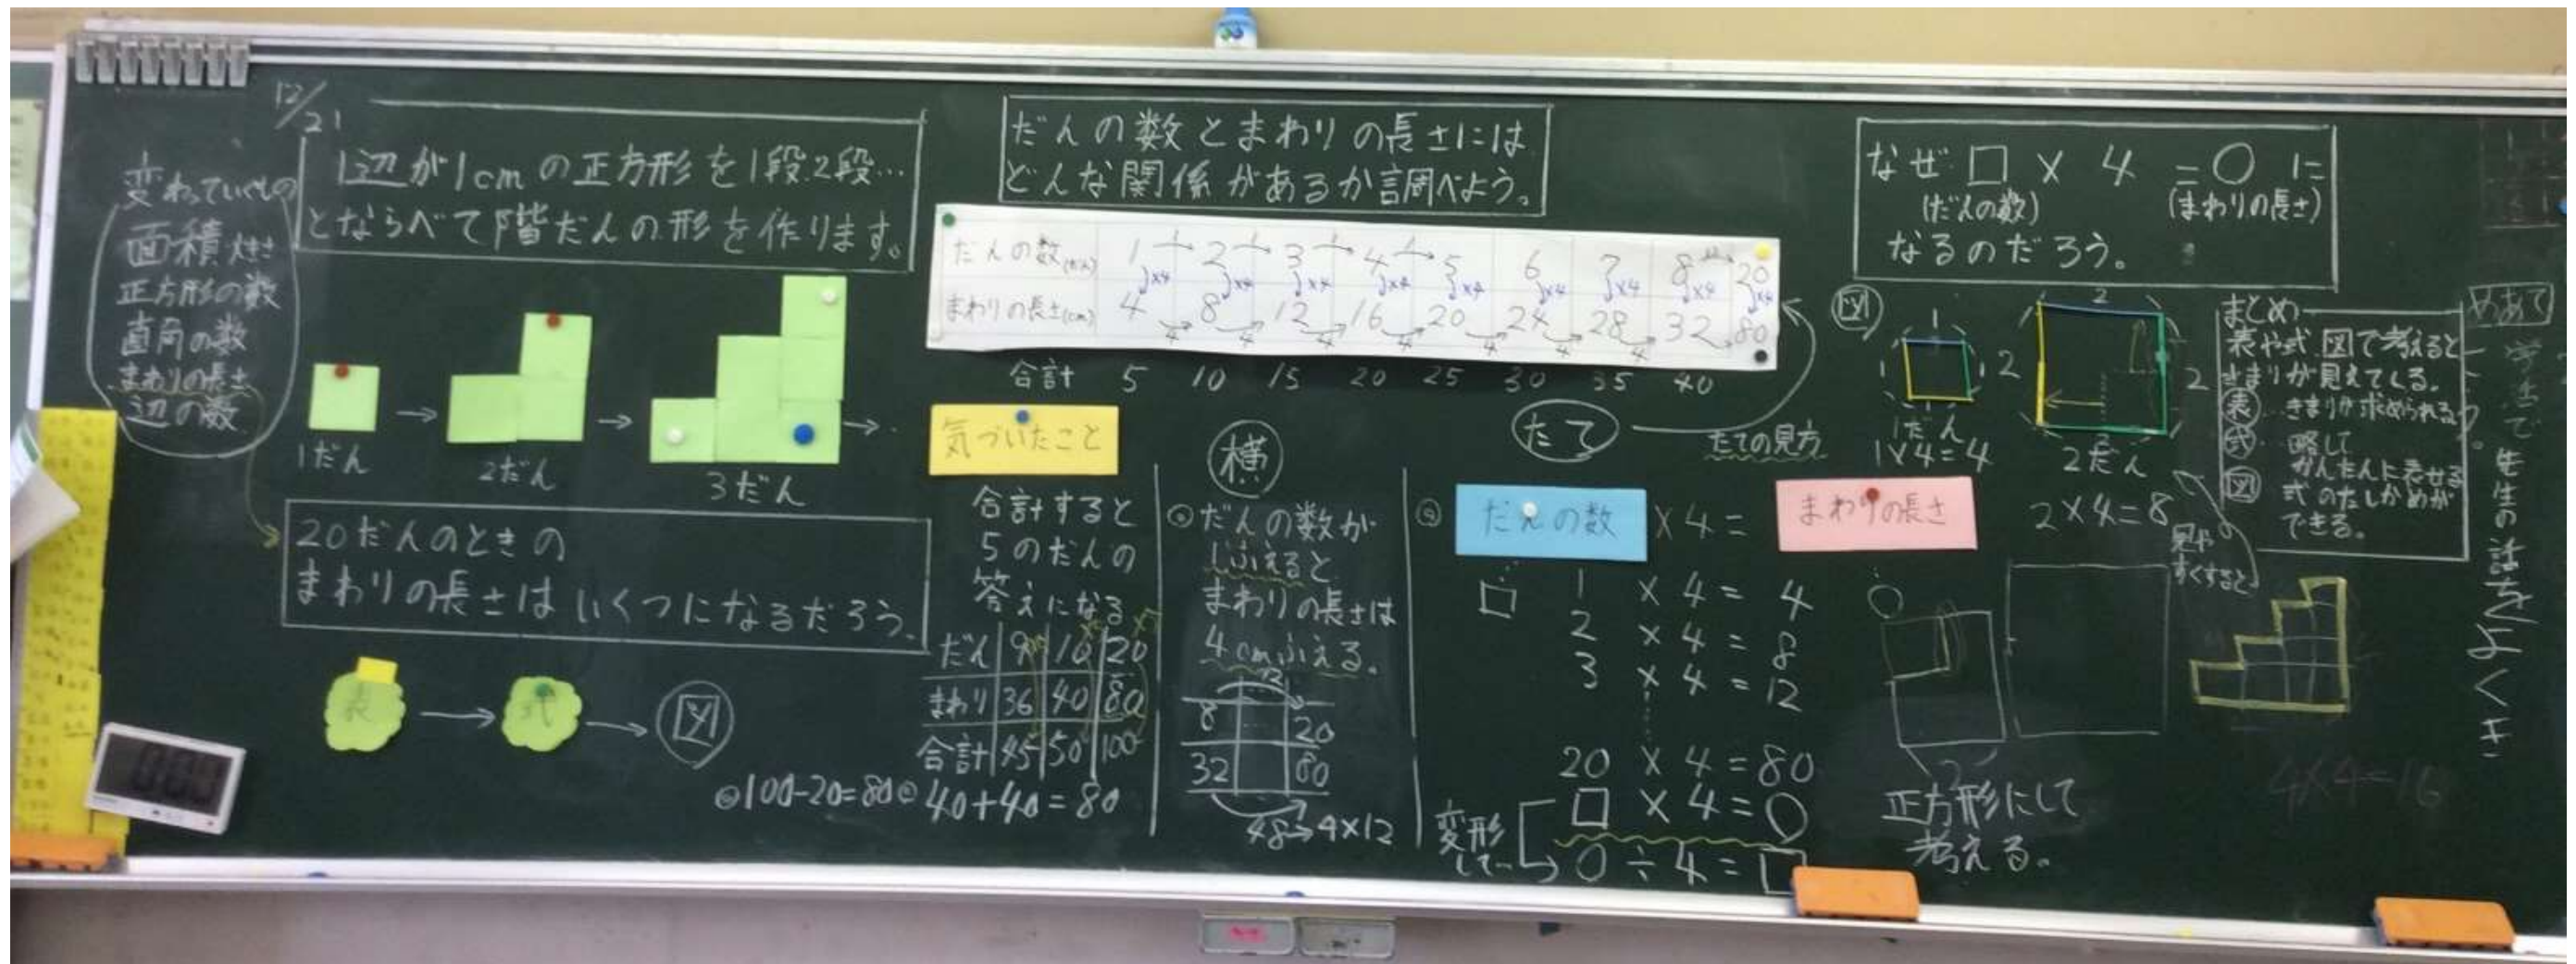 12/21
変わっていくもの
面積 大きさ
正方形の数
直角の数
まわりの長さ
辺の数
1辺が1cmの正方形を1段.2段…
とならべて階だんの形を作ります。
1だん
2だん
3だん
20だんのときの
まわりの長さはいくつになるだろう。
表
式
図
だんの数とまわりの長さには
どんな関係があるか調べよう。
だんの数(だん) 1 2 3 4 5 6 7 8 20
×4 ×4 ×4 ×4 ×4 ×4 ×4 ×4 ×4
まわりの長さ(cm) 4 8 12 16 20 24 28 32 80
4 4 4 4 4 4 4
合計 5 10 15 20 25 30 35 40
気づいたこと
合計すると
5のだんの
答えになる
だん 9 10 20
まわり 36 40 80
合計 45 50 100
100-20=80
40+40=80
横
だんの数が
1ふえると
まわりの長さは
4cmふえる。
8 20
32 80
48→4×12
たて
たての見方
だんの数 ×4= まわりの長さ
□ ○
1 × 4 = 4
2 × 4 = 8
3 × 4 = 12
20 × 4 = 80
□ × 4 = ○
変形
して
○ ÷ 4 = □
なぜ □ × 4 = ○ に
(だんの数) (まわりの長さ)
なるのだろう。
図
1
1だん
1×4=4
2
2
2
2
2だん
2×4=8
見や
すくすると
正方形にして
考える。
4×4=16
まとめ
表や式 図で考えると
きまりが見えてくる。
表…きまりが求められる
式…略して
かんたんに表せる
図 式のたしかめが
できる。
めあて
先生の話をよくき